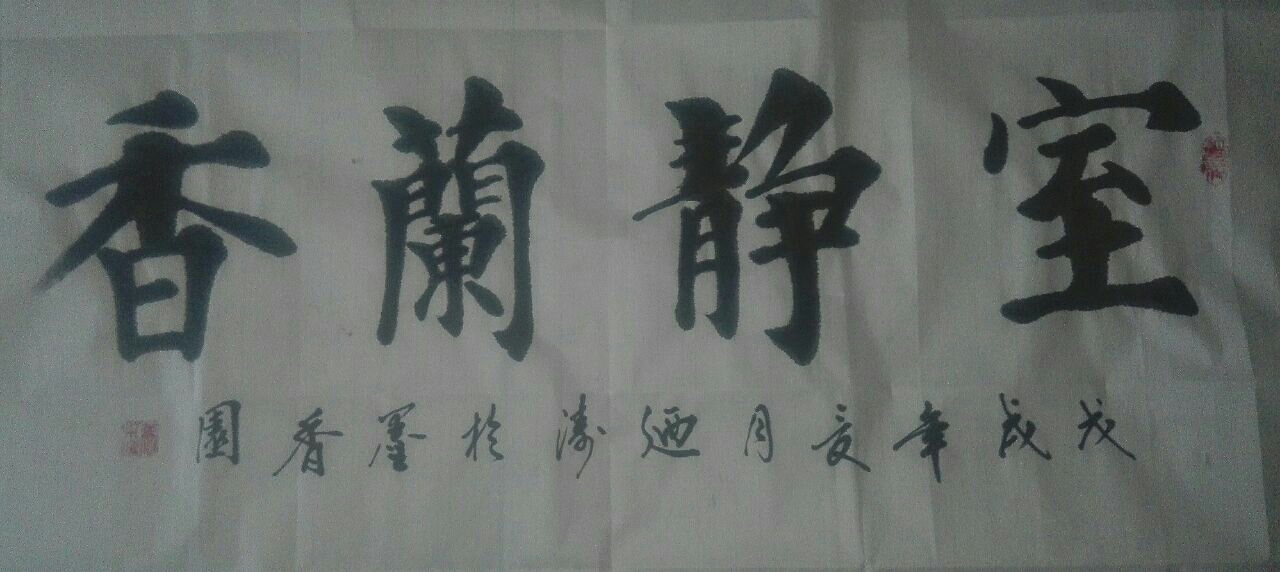 室静蘭香
戊戌年夏月廼濤於墨香園